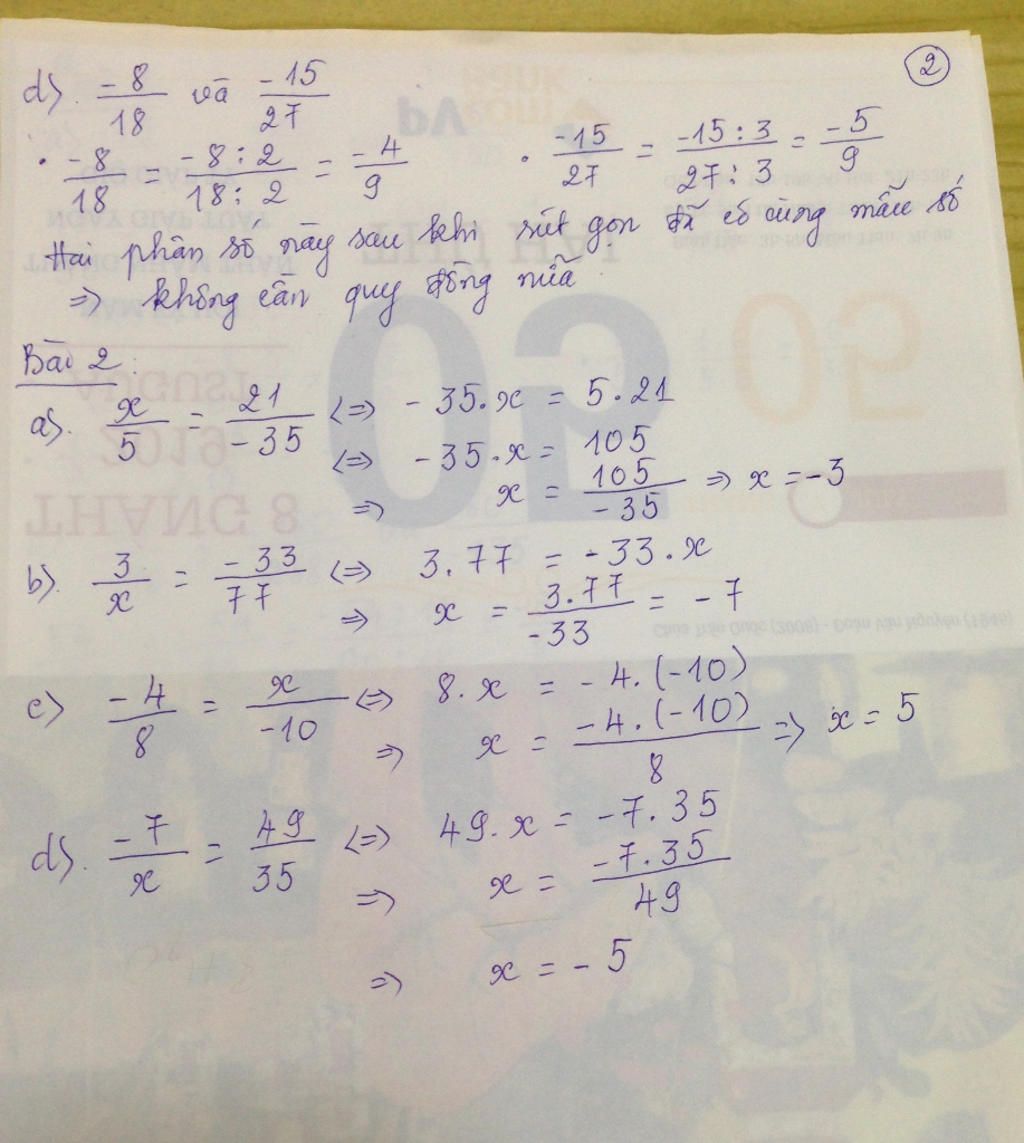 2
d). -8/18 và -15/27
• -8/18 = -8:2/18:2 = -4/9 • -15/27 = -15:3/27:3 = -5/9
Hai phân số này sau khi rút gọn đã có cùng mẫu số
=> không cần quy đồng nữa
Bài 2:
a). x/5 = 21/-35 <=> -35.x = 5.21
<=> -35.x = 105
=> x = 105/-35 => x = -3
b). 3/x = -33/77 <=> 3.77 = -33.x
=> x = 3.77/-33 = -7
c) -4/8 = x/-10 <=> 8.x = -4.(-10)
=> x = -4.(-10)/8 => x = 5
d). -7/x = 49/35 <=> 49.x = -7.35
=> x = -7.35/49
=> x = -5
THÁNG 8
2019
AUGUST
05
05
Chùa Trấn Quốc (2008) - Đoàn Văn Nguyên (1946)